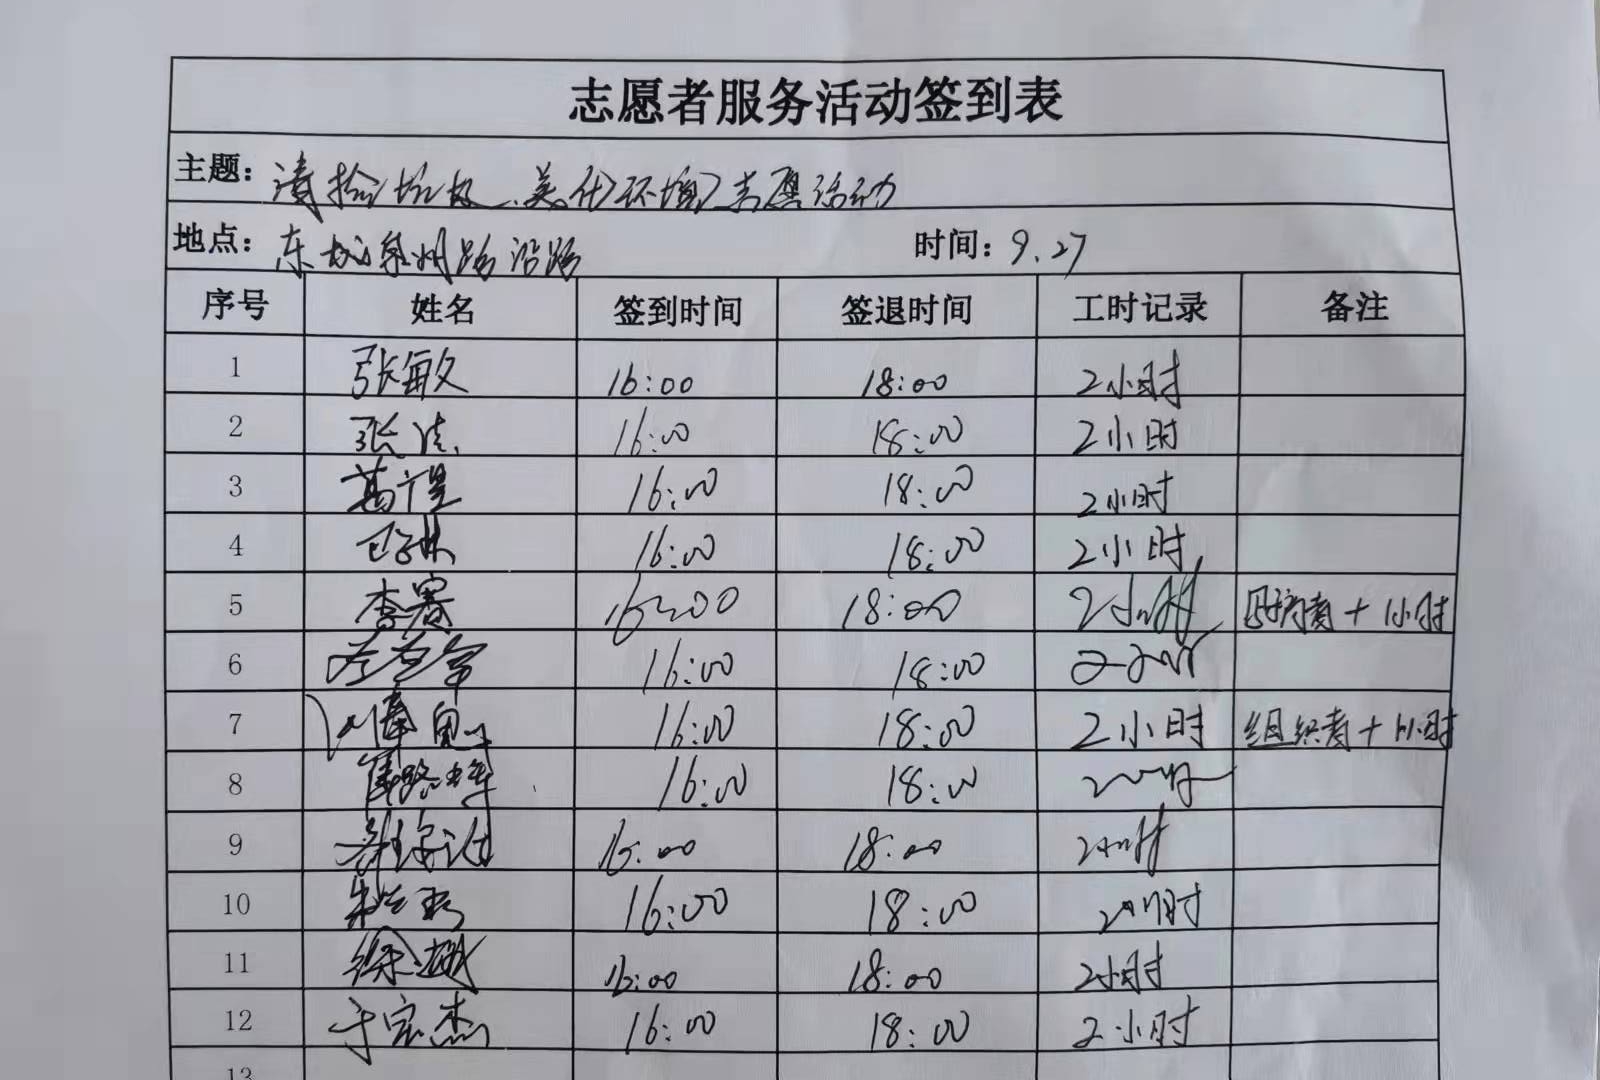 志愿者服务活动签到表
主题：清捡垃圾、美化环境志愿活动
地点：东城泉州路沿路 时间：9.27
序号 姓名 签到时间 签退时间 工时记录 备注
1 张敏 16:00 18:00 2小时
2 张洁 16:00 18:00 2小时
3 葛 16:00 18:00 2小时
4 16:00 18:00 2小时
5 李 16:00 18:00 2小时 +1小时
6 16:00 18:00 2小时
7 16:00 18:00 2小时 组织者+1小时
8 16:00 18:00 2小时
9 16:00 18:00 2小时
10 朱 16:00 18:00 2小时
11 徐 16:00 18:00 2小时
12 于宗杰 16:00 18:00 2小时
13